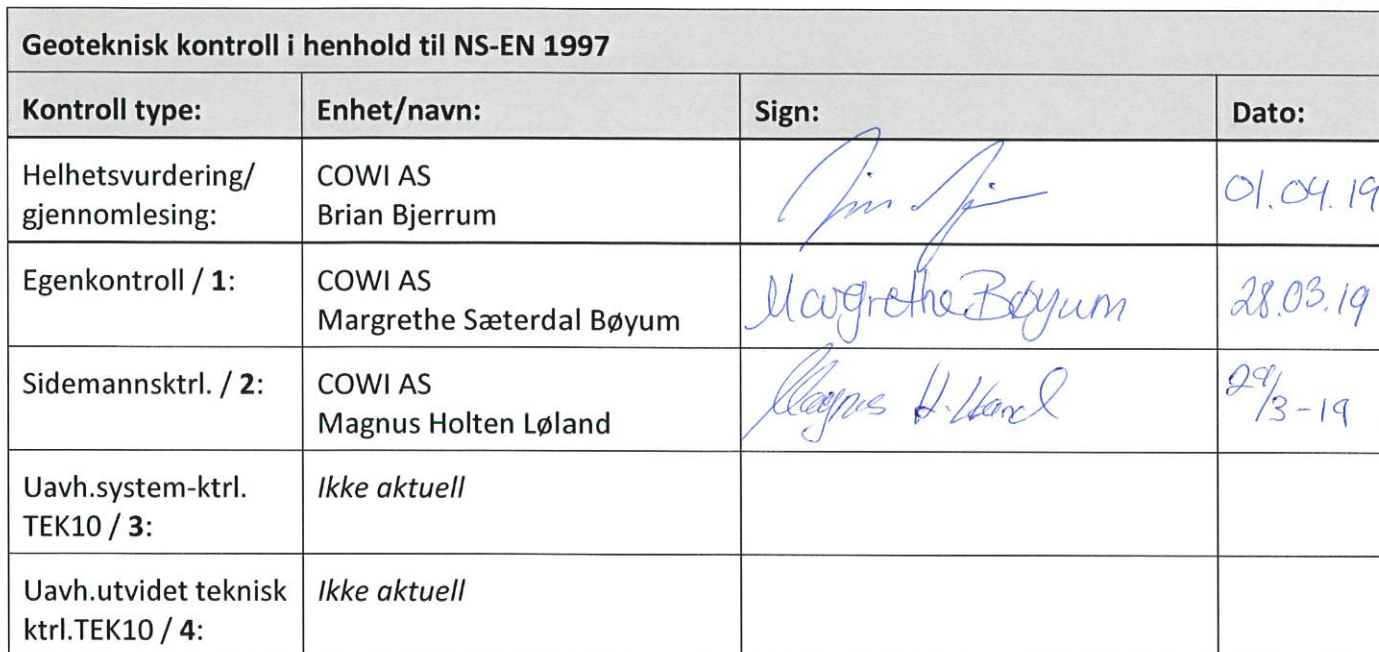 Geoteknisk kontroll i henhold til NS-EN 1997
Kontroll type: Enhet/navn: Sign: Dato:
Helhetsvurdering/ COWI AS
gjennomlesing: Brian Bjerrum 01.04.19
Egenkontroll / 1: COWI AS
Margrethe Sæterdal Bøyum Margrethe Bøyum 28.03.19
Sidemannsktrl. / 2: COWI AS
Magnus Holten Løland Magnus H. 29/3-19
Uavh.system-ktrl. Ikke aktuell
TEK10 / 3:
Uavh.utvidet teknisk Ikke aktuell
ktrl.TEK10 / 4: